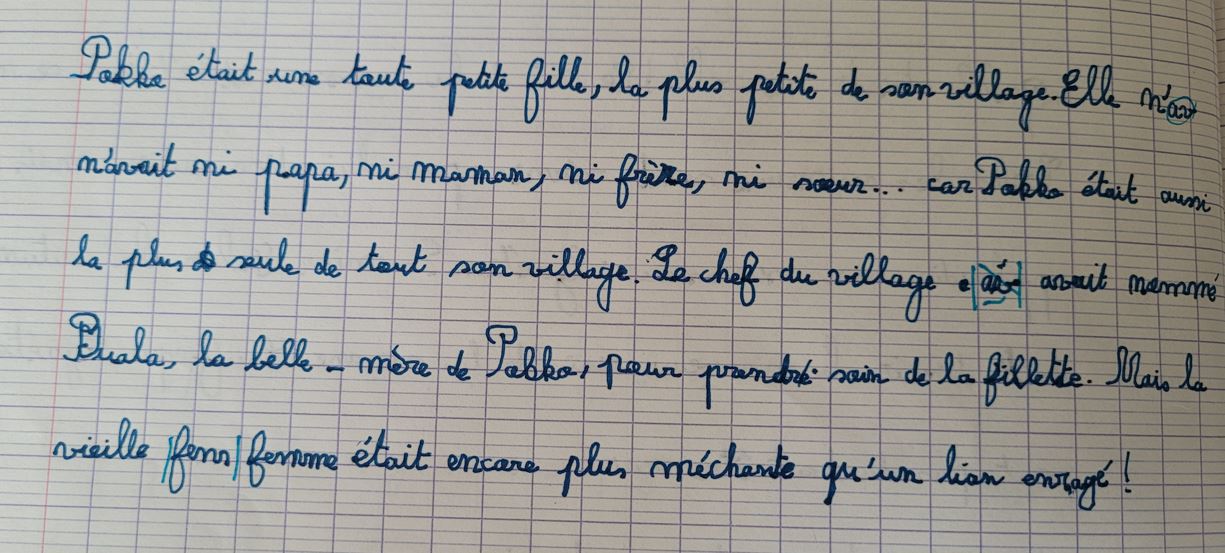 Pokko était une toute petite fille, la plus petite de son village. Elle n'av
n'avait ni papa, ni maman, ni frère, ni sœur... car Pokko était aussi
la plus seule de tout son village. Le chef du village avait nommé
Duala, la belle-mère de Pokko, pour prendre soin de la fillette. Mais la
vieille fem femme était encore plus méchante qu'un lion enragé !